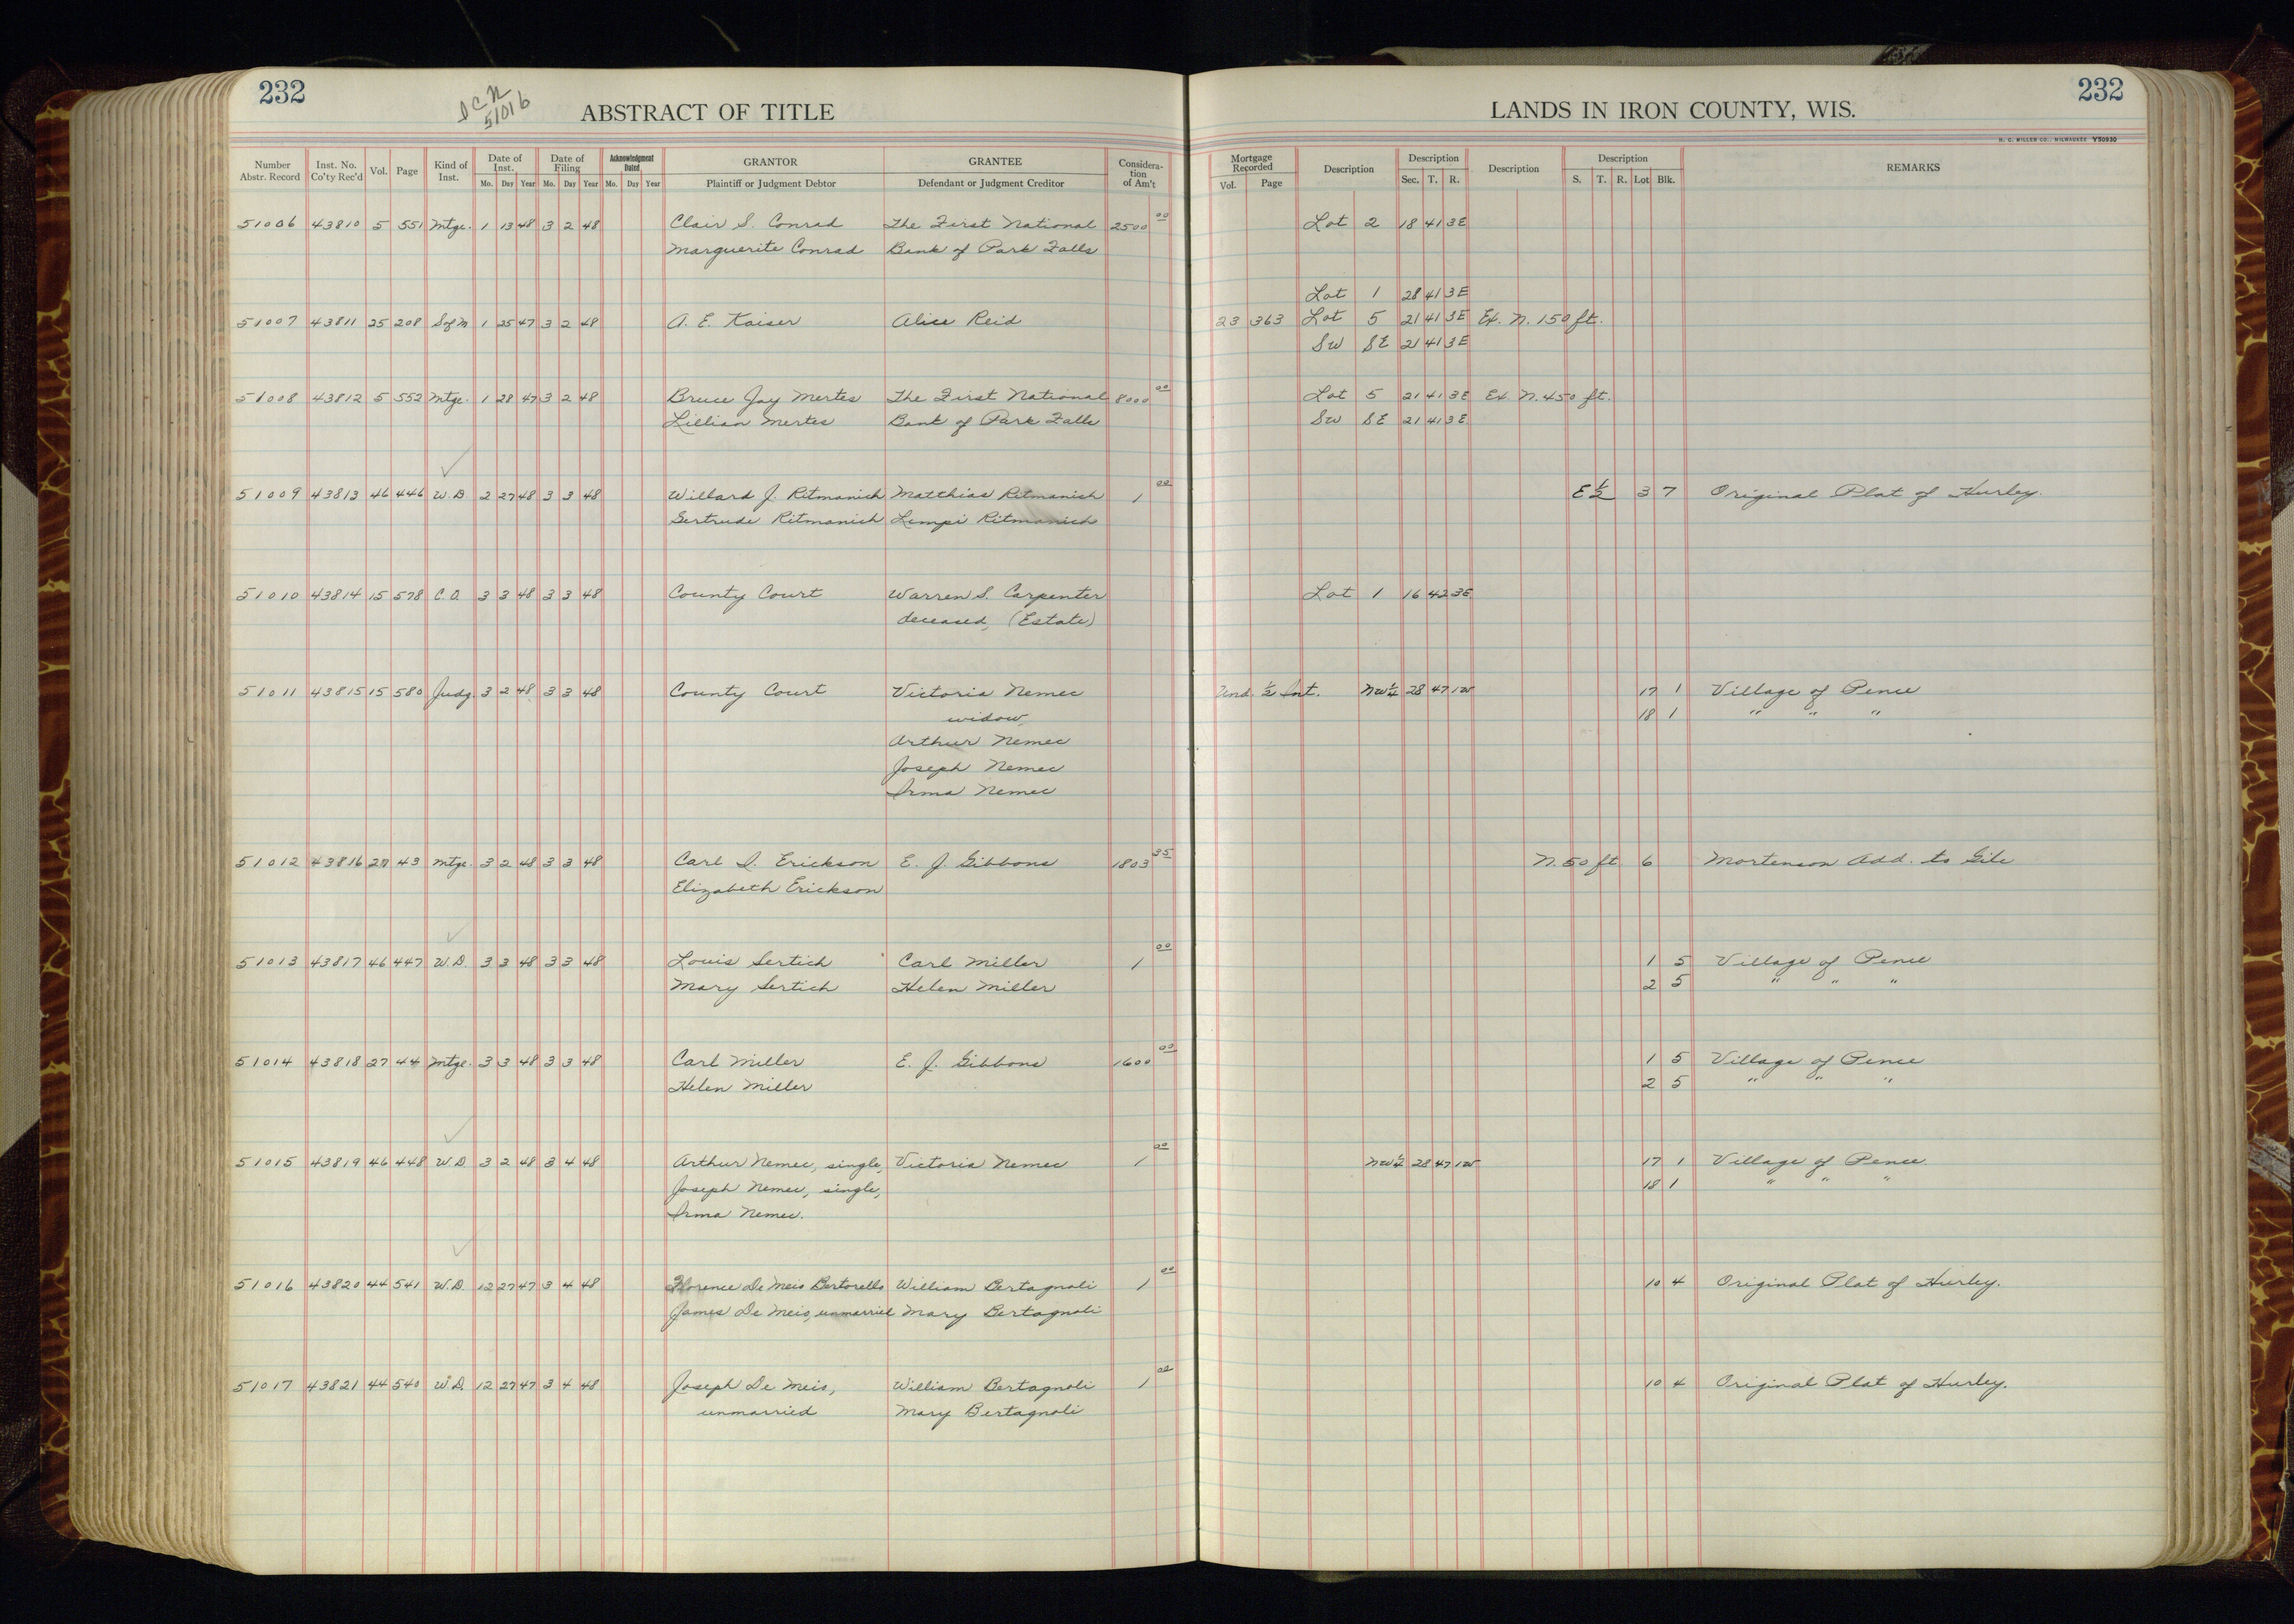 232
I C N
51016
ABSTRACT OF TITLE
LANDS IN IRON COUNTY, WIS.
232
H. C. MILLER CO., MILWAUKEE Y50930
Number Abstr. Record | Inst. No. Co'ty Rec'd | Vol. | Page | Kind of Inst. | Date of Inst. Mo. Day Year | Date of Filing Mo. Day Year | Acknowledgment Dated Mo. Day Year | GRANTOR Plaintiff or Judgment Debtor | GRANTEE Defendant or Judgment Creditor | Considera-tion of Am't | Mortgage Recorded Vol. Page | Description | Description Sec. T. R. | Description | Description S. T. R. Lot Blk. | REMARKS
51006 43810 5 551 Mtge. 1 13 48 3 2 48 Clair S. Conrad The First National 2500 00 Lot 2 18 41 3E
Marguerite Conrad Bank of Park Falls
Lot 1 28 41 3E
51007 43811 25 208 S of M 1 25 47 3 2 48 A. E. Kaiser Alice Reid 23 363 Lot 5 21 41 3E Ex. N. 150 ft.
SW SE 21 41 3E
51008 43812 5 552 Mtge. 1 28 47 3 2 48 Bruce Jay Mertes The First National 8000 00 Lot 5 21 41 3E Ex. N. 450 ft.
Lillian Mertes Bank of Park Falls SW SE 21 41 3E
51009 43813 46 446 W.D. 2 27 48 3 3 48 Willard J. Ritmanich Matthias Ritmanich 1 00 E ½ 3 7 Original Plat of Hurley.
Gertrude Ritmanich Lempi Ritmanich
51010 43814 15 578 C.O. 3 3 48 3 3 48 County Court Warren S. Carpenter Lot 1 16 42 3E
deceased, (Estate)
51011 43815 15 580 Judg. 3 2 48 3 3 48 County Court Victoria Nemec Und. ½ Int. NW¼ 28 47 1W 17 1 Village of Pence
widow 18 1 " " "
Arthur Nemec
Joseph Nemec
Irma Nemec
51012 43816 27 43 Mtge. 3 2 48 3 3 48 Carl I. Erickson E. J. Gibbons 1803 35 N. 50 ft. 6 Mortenson Add. to Gile
Elizabeth Erickson
51013 43817 46 447 W.D. 3 3 48 3 3 48 Louis Sertich Carl Miller 1 00 1 5 Village of Pence
Mary Sertich Helen Miller 2 5 " " "
51014 43818 27 44 Mtge. 3 3 48 3 3 48 Carl Miller E. J. Gibbons 1600 00 1 5 Village of Pence
Helen Miller 2 5 " " "
51015 43819 46 448 W.D 3 2 48 3 4 48 Arthur Nemec, single, Victoria Nemec 1 00 NW¼ 28 47 1W 17 1 Village of Pence.
Joseph Nemec, single, 18 1 " " "
Irma Nemec.
51016 43820 44 541 W.D. 12 27 47 3 4 48 Florence De Meis Bertorello William Bertagnoli 1 00 10 4 Original Plat of Hurley.
James De Meis, unmarried Mary Bertagnoli
51017 43821 44 540 W.D. 12 27 47 3 4 48 Joseph De Meis, William Bertagnoli 1 00 10 4 Original Plat of Hurley.
unmarried Mary Bertagnoli